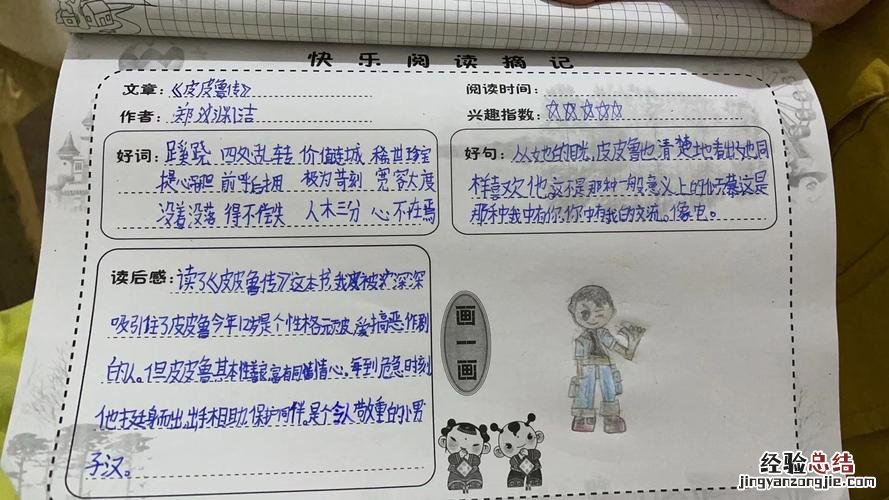 快乐阅读摘记
文章:《皮皮鲁传》
阅读时间:
作者:郑渊洁
兴趣指数:☆☆☆☆☆
好词:蹊跷 四处乱转 价值连城 稀世珍宝
提心吊胆 前呼后拥 极为苛刻 宽容大度
没着没落 得不偿失 入木三分 心不在焉
好句:从她的目光,皮皮鲁也清楚地看出她同
样喜欢他,这不是那种一般意义上的仰慕这是
那种我中有你,你中有我的交流。像电。
读后感:读了《皮皮鲁传》这本书,我被深深
吸引住了皮皮鲁今年12岁是个性格顽皮,爱搞恶作剧
的人。但皮皮鲁其本性善良富有同情心。每到危急时刻
他挺身而出,出手相助,保护同伴。是个令人敬重的小男
子汉。
画一画
经验总结
jingyanzongjie.com